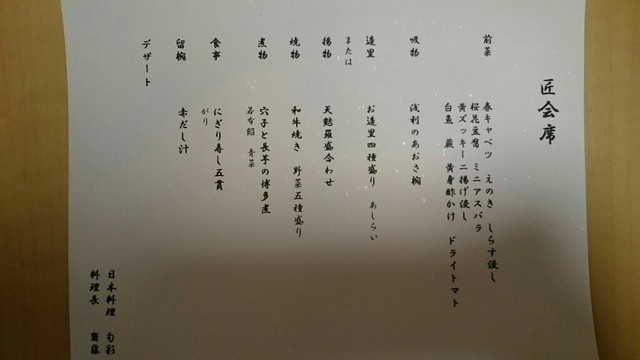 匠会席
前菜
春キャベツ えのき しらす浸し
桜花豆腐 ミニアスパラ
黄ズッキーニ揚げ浸し
白魚 蕨 黄身酢かけ ドライトマト
吸物 浅利のあおさ椀
造里 お造里四種盛り あしらい
または
揚物 天麩羅盛合わせ
焼物 和牛焼き 野菜五種盛り
煮物 穴子と長芋の博多煮
若布餡 青菜
食事 にぎり寿し五貫
がり
留椀 赤だし汁
デザート
日本料理 旬彩
料理長 齋藤